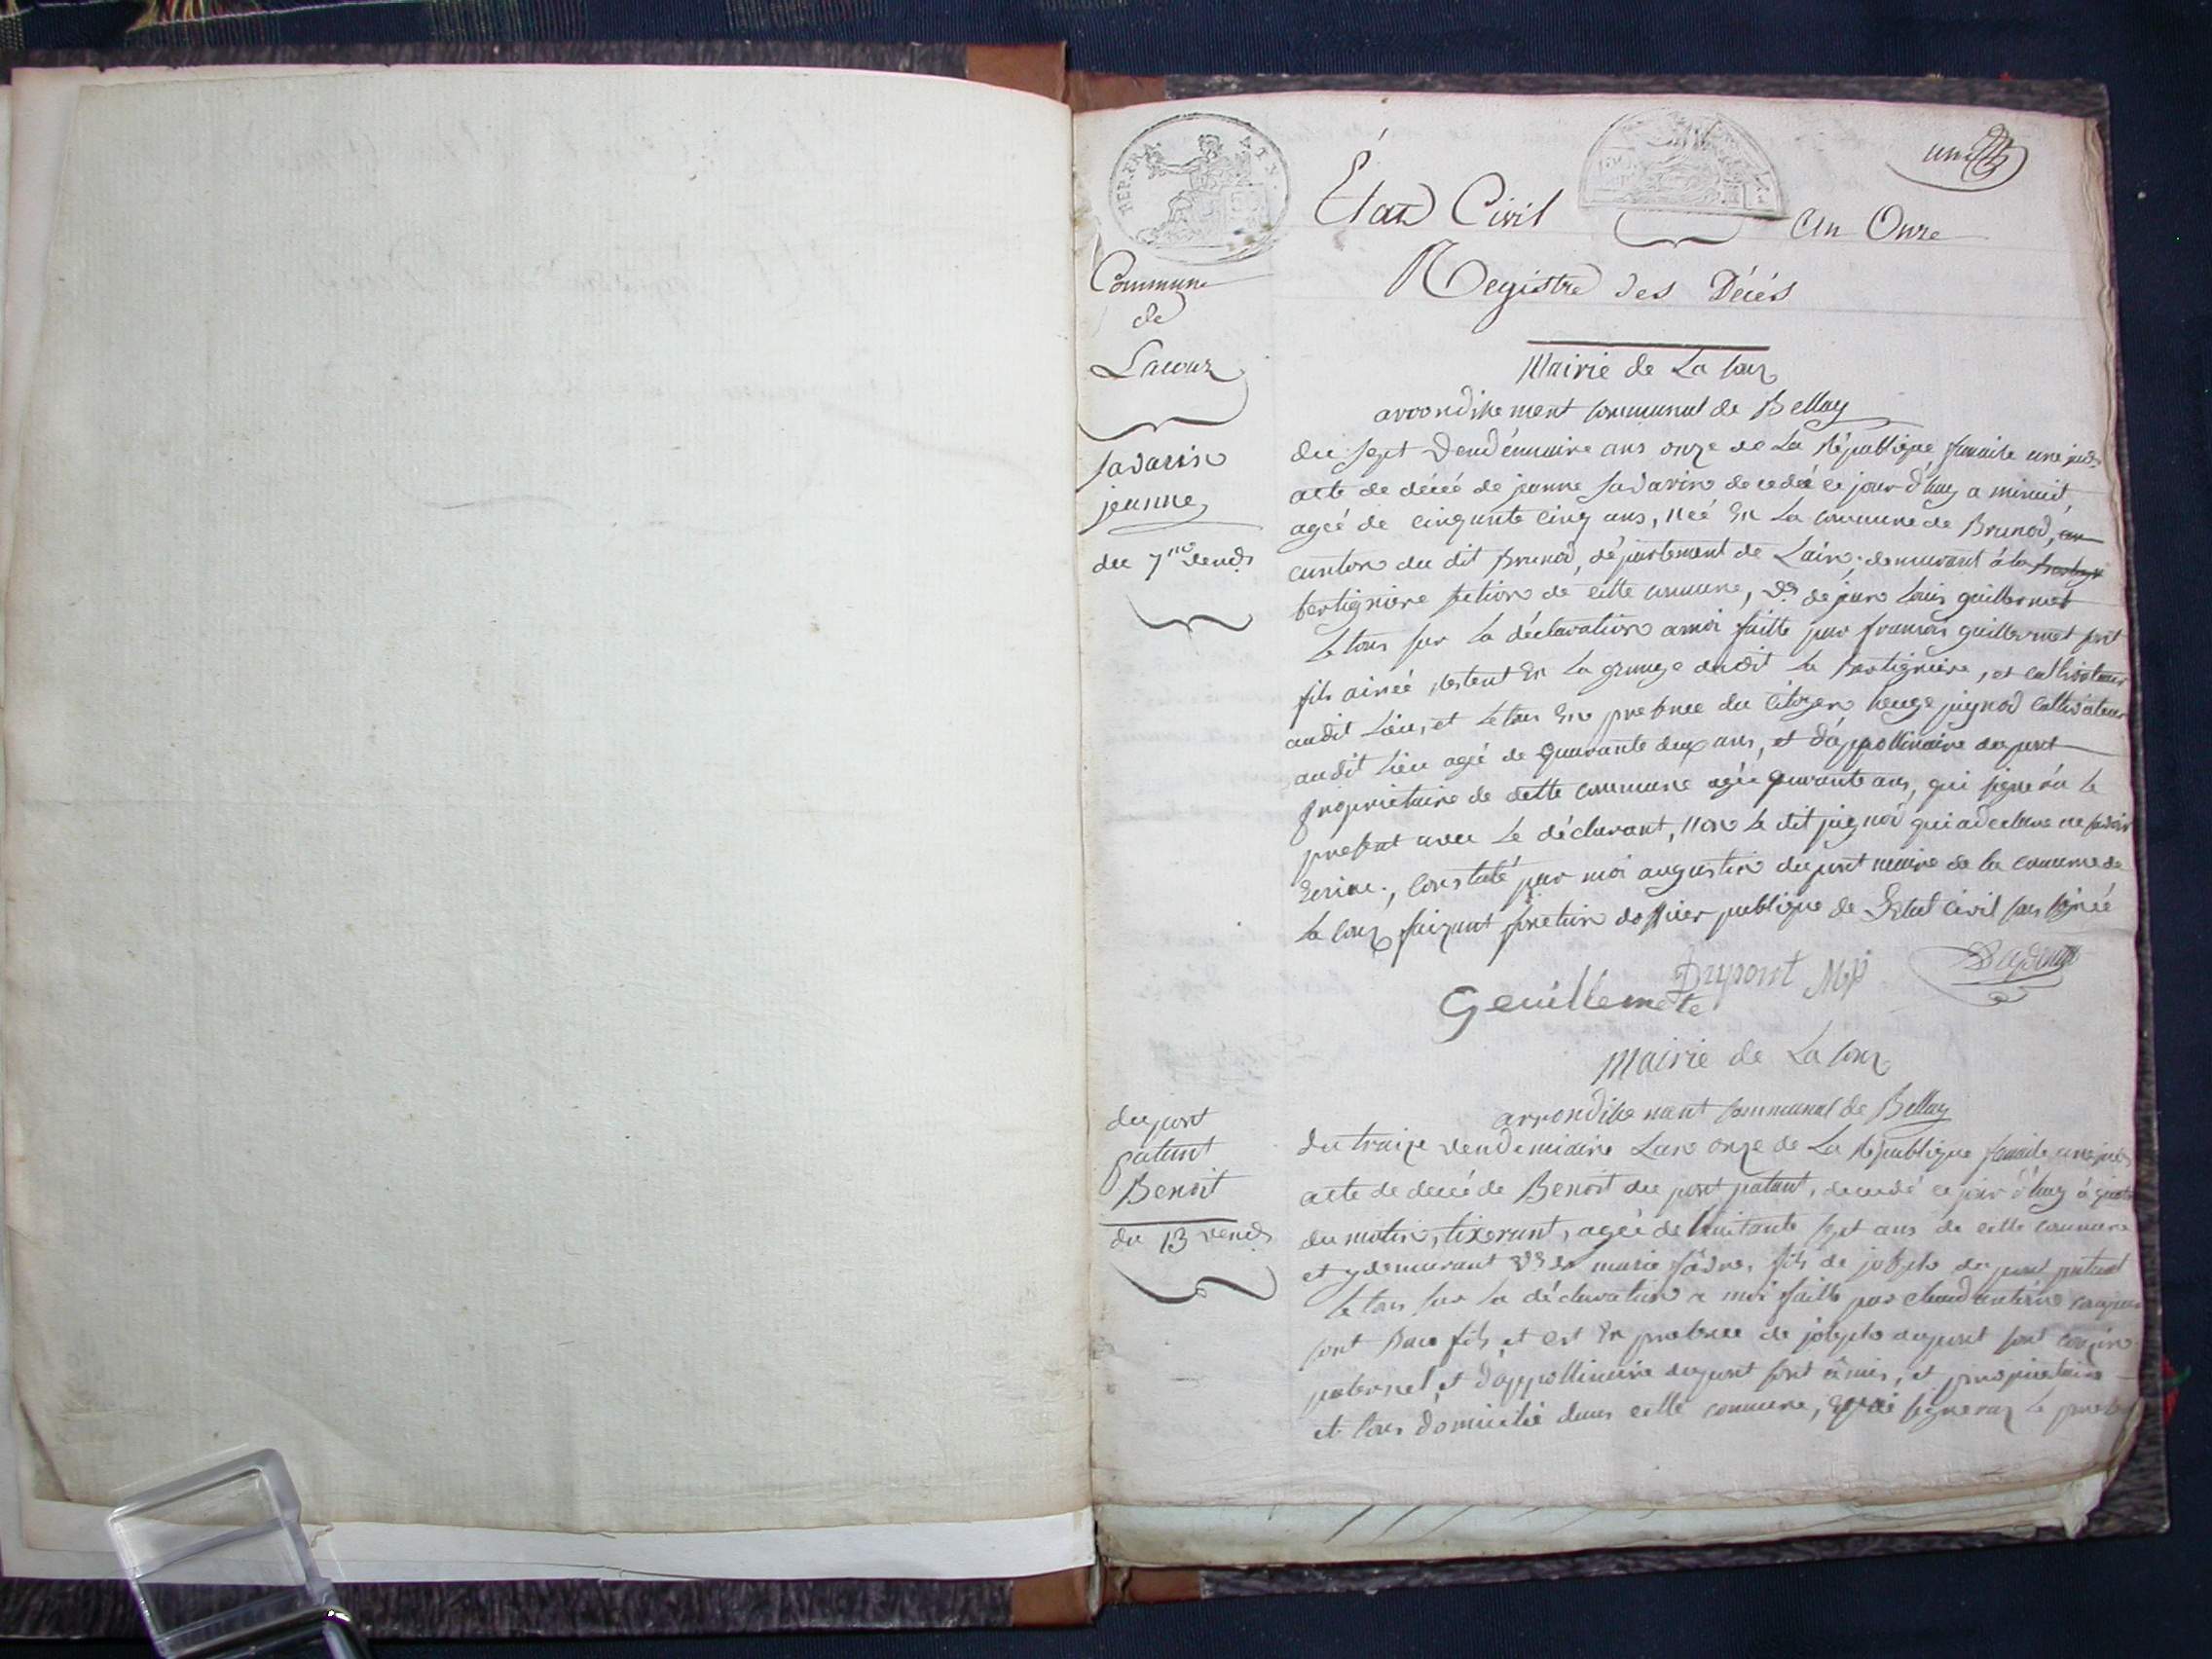 REP. FRA.
un
État Civil
An Onze
Registre des Décés
Commune
de
Lacoux
Savarin
jeanne
du 7me vend.
Mairie de La Coux
arrondissement communal de Bellay
du sept Vendémiaire ans onze de La République
acte de décéé de jeanne Savarin decedéé ce jour d'huy a minuit,
ageé de cinquante cinq ans, néé En La commune de Brenod,
canton du dit Brenod, département de Lain, demeurant á la
bertigniere section de cette commune, de jean Louis guillermet
Le tous sur la déclaration a moi faitte par françois guillermet sont
fils ainéé, restent En La grange dudit La Bertigniere, et cultivateur
audit Lieu, et Le tous En presence du Citoyen jugnod cultivateur
audit Lieu agé de quarante deux ans, et d'appollinaire dupont
propriétaire de cette commune agéé quarante ans, qui signera le
present avec Le déclarant, non le dit jugnod qui a declare ne savoir
Ecrire, constaté par moi augustin dupont maire de la commune de
La Coux faizant fonction dofficier publique de Letat civil sous signéé
Dupont
Geuillemete
Mairie de La Coux
arrondissement communal de Bellay
dupont
patant
Benoit
du 13 vend.
du traize vendemiaire Lan onze de La République
acte de decéé de Benoit du pont patant, decedé ce jour d'huy á
du matin, tixerant, agéé de huitante sept ans de cette commune
et y demeurant de marie fils de joseph du pont patant
Le tous sur la déclaration a moi faitte par
sont Beau fils, et est En presence de joseph dupont sont cousin
paternel, et d'appollinaire dupont sont amis, et propriétaire
et tous domicilié dans cette commune, qui signeront le